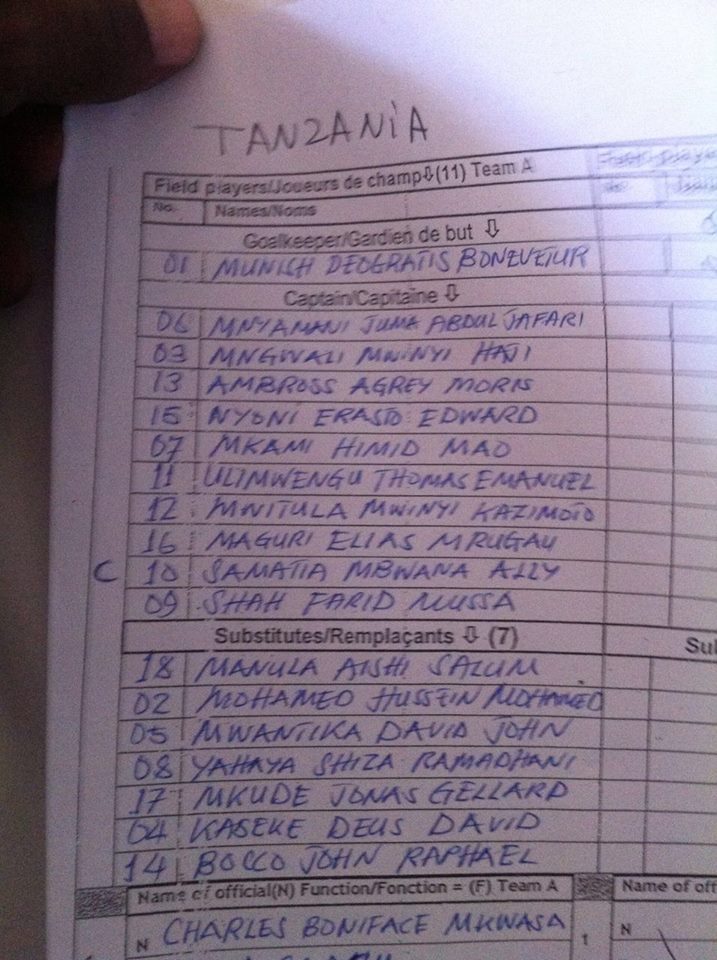 TANZANIA
Field players/Joueurs de champ⇩(11) Team A
No. Names/Noms
Goalkeeper/Gardien de but ⇩
01 MUNISH DEOGRATIS BONEVETUR
Captain/Capitaine ⇩
06 MNYAMANI JUMA ABDUL JAFARI
03 MNGWALI MWINYI HAJI
13 AMBROSS AGREY MORIS
15 NYONI ERASTO EDWARD
07 MKAMI HIMID MAO
11 ULIMWENGU THOMAS EMANUEL
12 MWITULA MWINYI KAZIMOTO
16 MAGURI ELIAS MRUGAU
C 10 SAMATTA MBWANA ALLY
09 SHAH FARID MUSSA
Substitutes/Remplaçants ⇩ (7)
18 MANULA AISHI SALUM
02 MOHAMED HUSSEIN MOHAMED
05 MWANTIKA DAVID JOHN
08 YAHAYA SHIZA RAMADHANI
17 MKUDE JONAS GELLARD
04 KASEKE DEUS DAVID
14 BOCCO JOHN RAPHAEL
Name of official(N) Function/Fonction = (F) Team A
Name of off
N CHARLES BONIFACE MKWASA 1 N